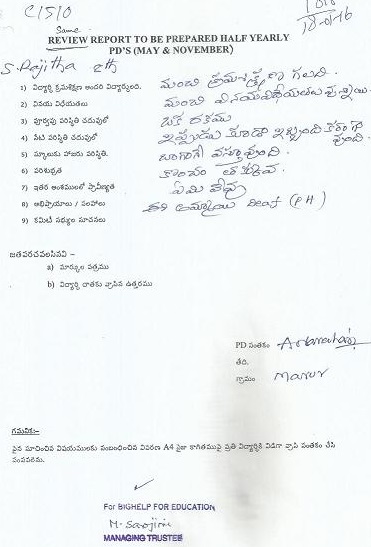 C1510
18-01-16
Same
REVIEW REPORT TO BE PREPARED HALF YEARLY
PD'S (MAY & NOVEMBER)
S. Rajitha 8th
1) విద్యార్థి క్రమశిక్షణ అందరి విద్యార్థులది. మంచి క్రమశిక్షణ గలది.
2) వినయ విధేయతలు మంచి వినయవిధేయతలు వున్నాయి
3) పూర్వపు పరిస్థితి చదువులో ఒక రకము
4) నేటి పరిస్థితి చదువులో ఇప్పుడు కూడా ఇబ్బంది కరంగా వుంది.
5) స్కూలుకు హాజరు పరిస్థితి. బాగానే వస్తూవుంది.
6) పరిశుభ్రత కొంచం తక్కువ.
7) ఇతర అంశములలో ప్రావీణ్యత ఏమి లేవు
8) అభిప్రాయాలు / సలహాలు ఈ అమ్మాయి Deaf (PH)
9) కమిటీ సభ్యుల సూచనలు
జతపరచవలసినవి –
a) మార్కుల పత్రము
b) విద్యార్థి రాతకు వ్రాసిన ఉత్తరము
PD సంతకం
తేది.
గ్రామం Marur
గమనిక:-
పైన సూచించిన విషయములకు సంబంధించిన వివరణ A4 సైజు కాగితముపై ప్రతి విద్యార్థికి విడిగా వ్రాసి సంతకం చేసి
పంపవలెను.
For BIGHELP FOR EDUCATION
M. Sarojini
MANAGING TRUSTEE